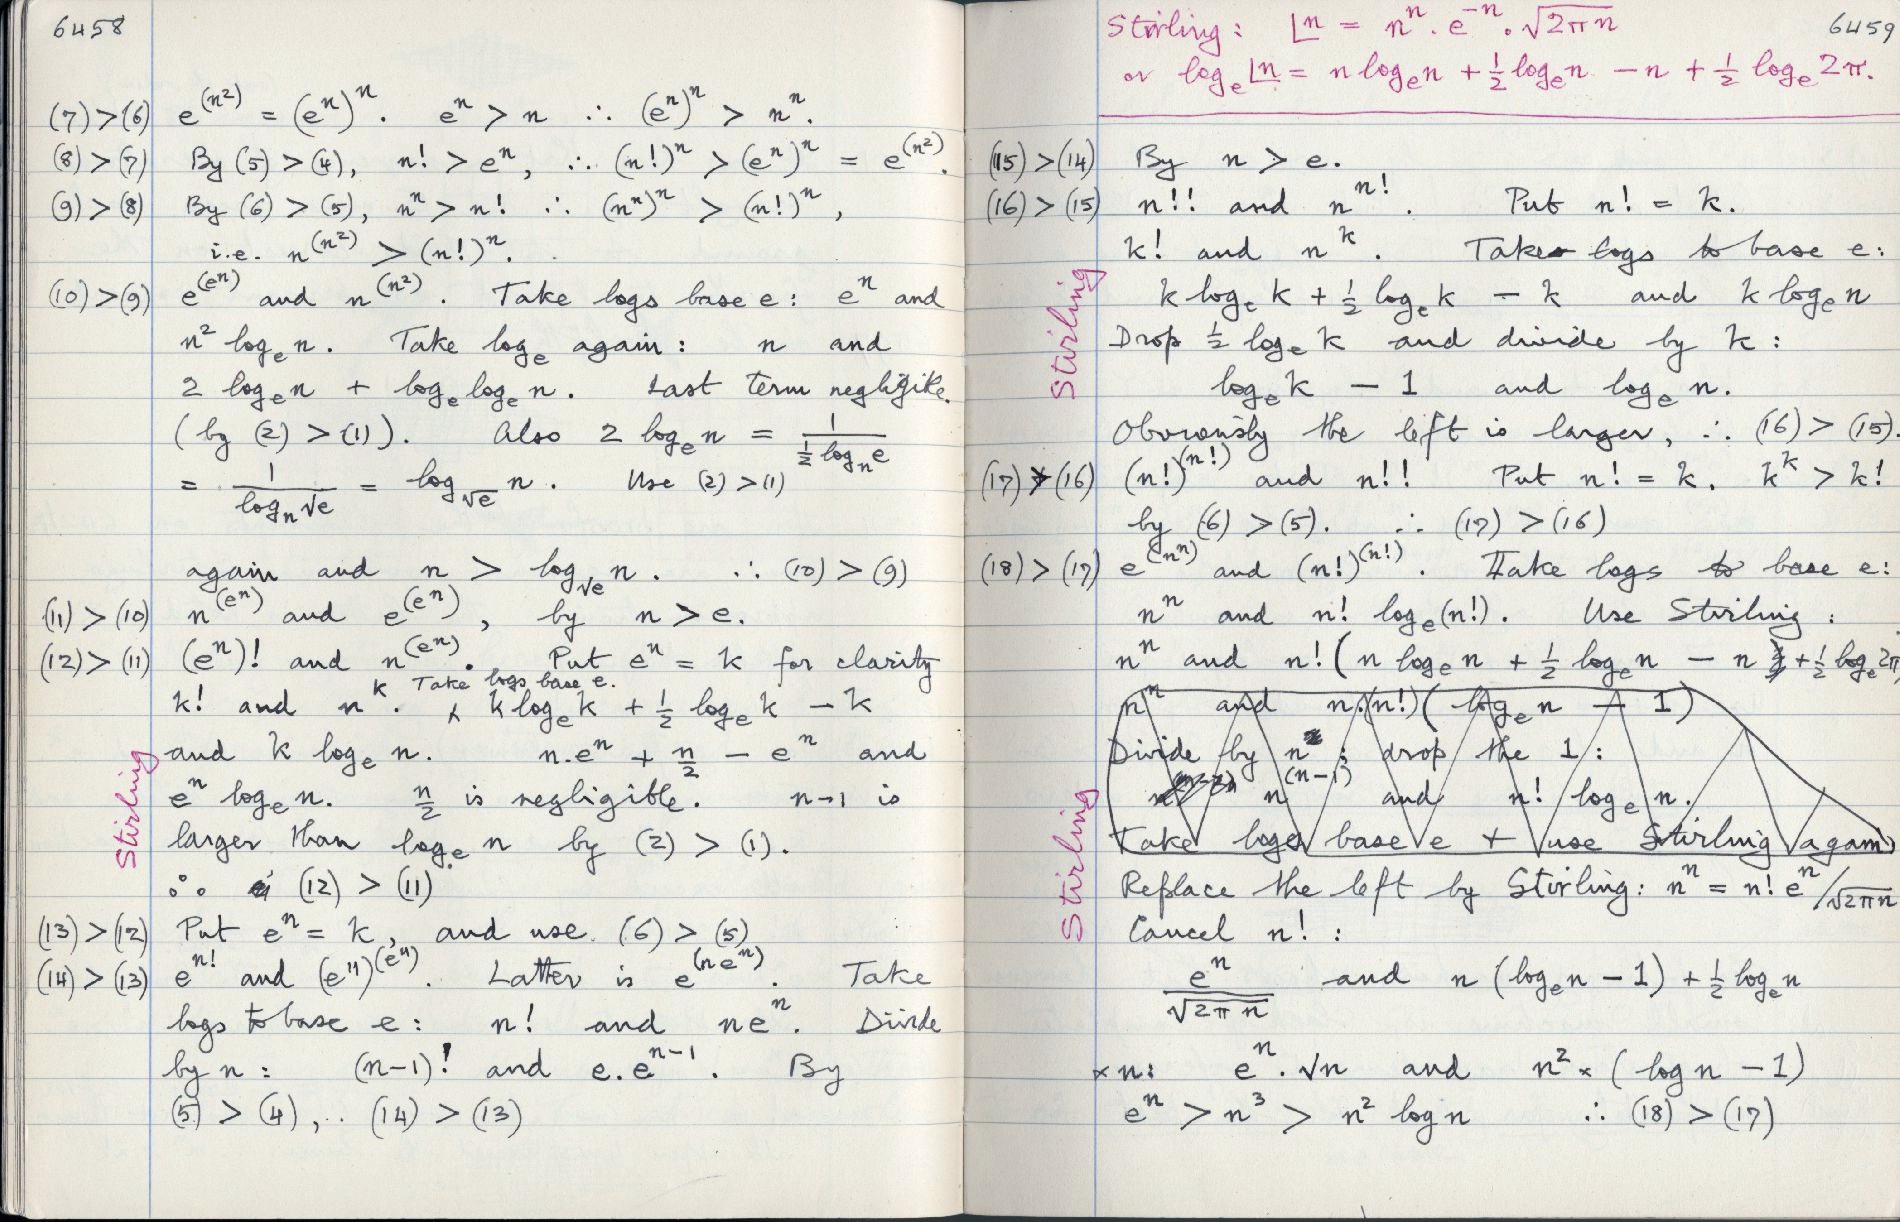 6458
(7)>(6) e^(n²) = (eⁿ)ⁿ. eⁿ > n ∴ (eⁿ)ⁿ > nⁿ.
(8)>(7) By (5)>(4), n! > eⁿ, ∴ (n!)ⁿ > (eⁿ)ⁿ = e^(n²).
(9)>(8) By (6)>(5), nⁿ > n! ∴ (nⁿ)ⁿ > (n!)ⁿ,
i.e. n^(n²) > (n!)ⁿ.
(10)>(9) e^(eⁿ) and n^(n²). Take logs base e: eⁿ and
n² logₑn. Take logₑ again: n and
2 logₑn + logₑlogₑn. Last term negligible.
(by (2)>(1)). Also 2 logₑn = 1/(½ logₙe)
= 1/(logₙ√e) = log_√e n. Use (2)>(1)
again and n > log_√e n. ∴ (10)>(9)
(11)>(10) n^(eⁿ) and e^(eⁿ), by n > e.
(12)>(11) (eⁿ)! and n^(eⁿ). Put eⁿ = k for clarity
Take logs base e.
k! and n^k. k logₑk + ½ logₑk − k
and k logₑn. n.eⁿ + n/2 − eⁿ and
Stirling
eⁿ logₑn. n/2 is negligible. n−1 is
larger than logₑ n by (2) > (1).
∴ (12) > (11)
(13)>(12) Put eⁿ = k, and use (6) > (5)
(14)>(13) e^n! and (eⁿ)^(eⁿ). Latter is e^(neⁿ). Take
logs to base e: n! and neⁿ. Divide
by n: (n−1)! and e.e^n−1. By
(5) > (4), ∴ (14) > (13)
6459
Stirling: |n = nⁿ.e⁻ⁿ.√2πn
or logₑ|n = n logₑn + ½ logₑn − n + ½ logₑ2π.
(15)>(14) By n > e.
(16)>(15) n!! and n^n!. Put n! = k.
k! and n^k. Take logs to base e:
Stirling
k logₑk + ½ logₑk − k and k logₑn
Drop ½ logₑk and divide by k:
logₑk − 1 and logₑn.
Obviously the left is larger, ∴ (16)>(15).
(17)>(16) (n!)^(n!) and n!! Put n! = k. k^k > k!
by (6)>(5). ∴ (17)>(16)
(18)>(17) e^(nⁿ) and (n!)^(n!). Take logs to base e:
nⁿ and n! logₑ(n!). Use Stirling:
nⁿ and n!(n logₑn + ½ logₑn − n + ½ logₑ2π)
nⁿ and n.(n!)(logₑn − 1)
Divide by n; drop the 1:
n^(n−1) and n! logₑn.
Take logs base e + use Stirling again
Stirling
Replace the left by Stirling: nⁿ = n! eⁿ/√2πn
Cancel n!:
eⁿ/√2πn and n(logₑn − 1) + ½ logₑn
×n: eⁿ.√n and n² × (log n − 1)
eⁿ > n³ > n² log n ∴ (18)>(17)